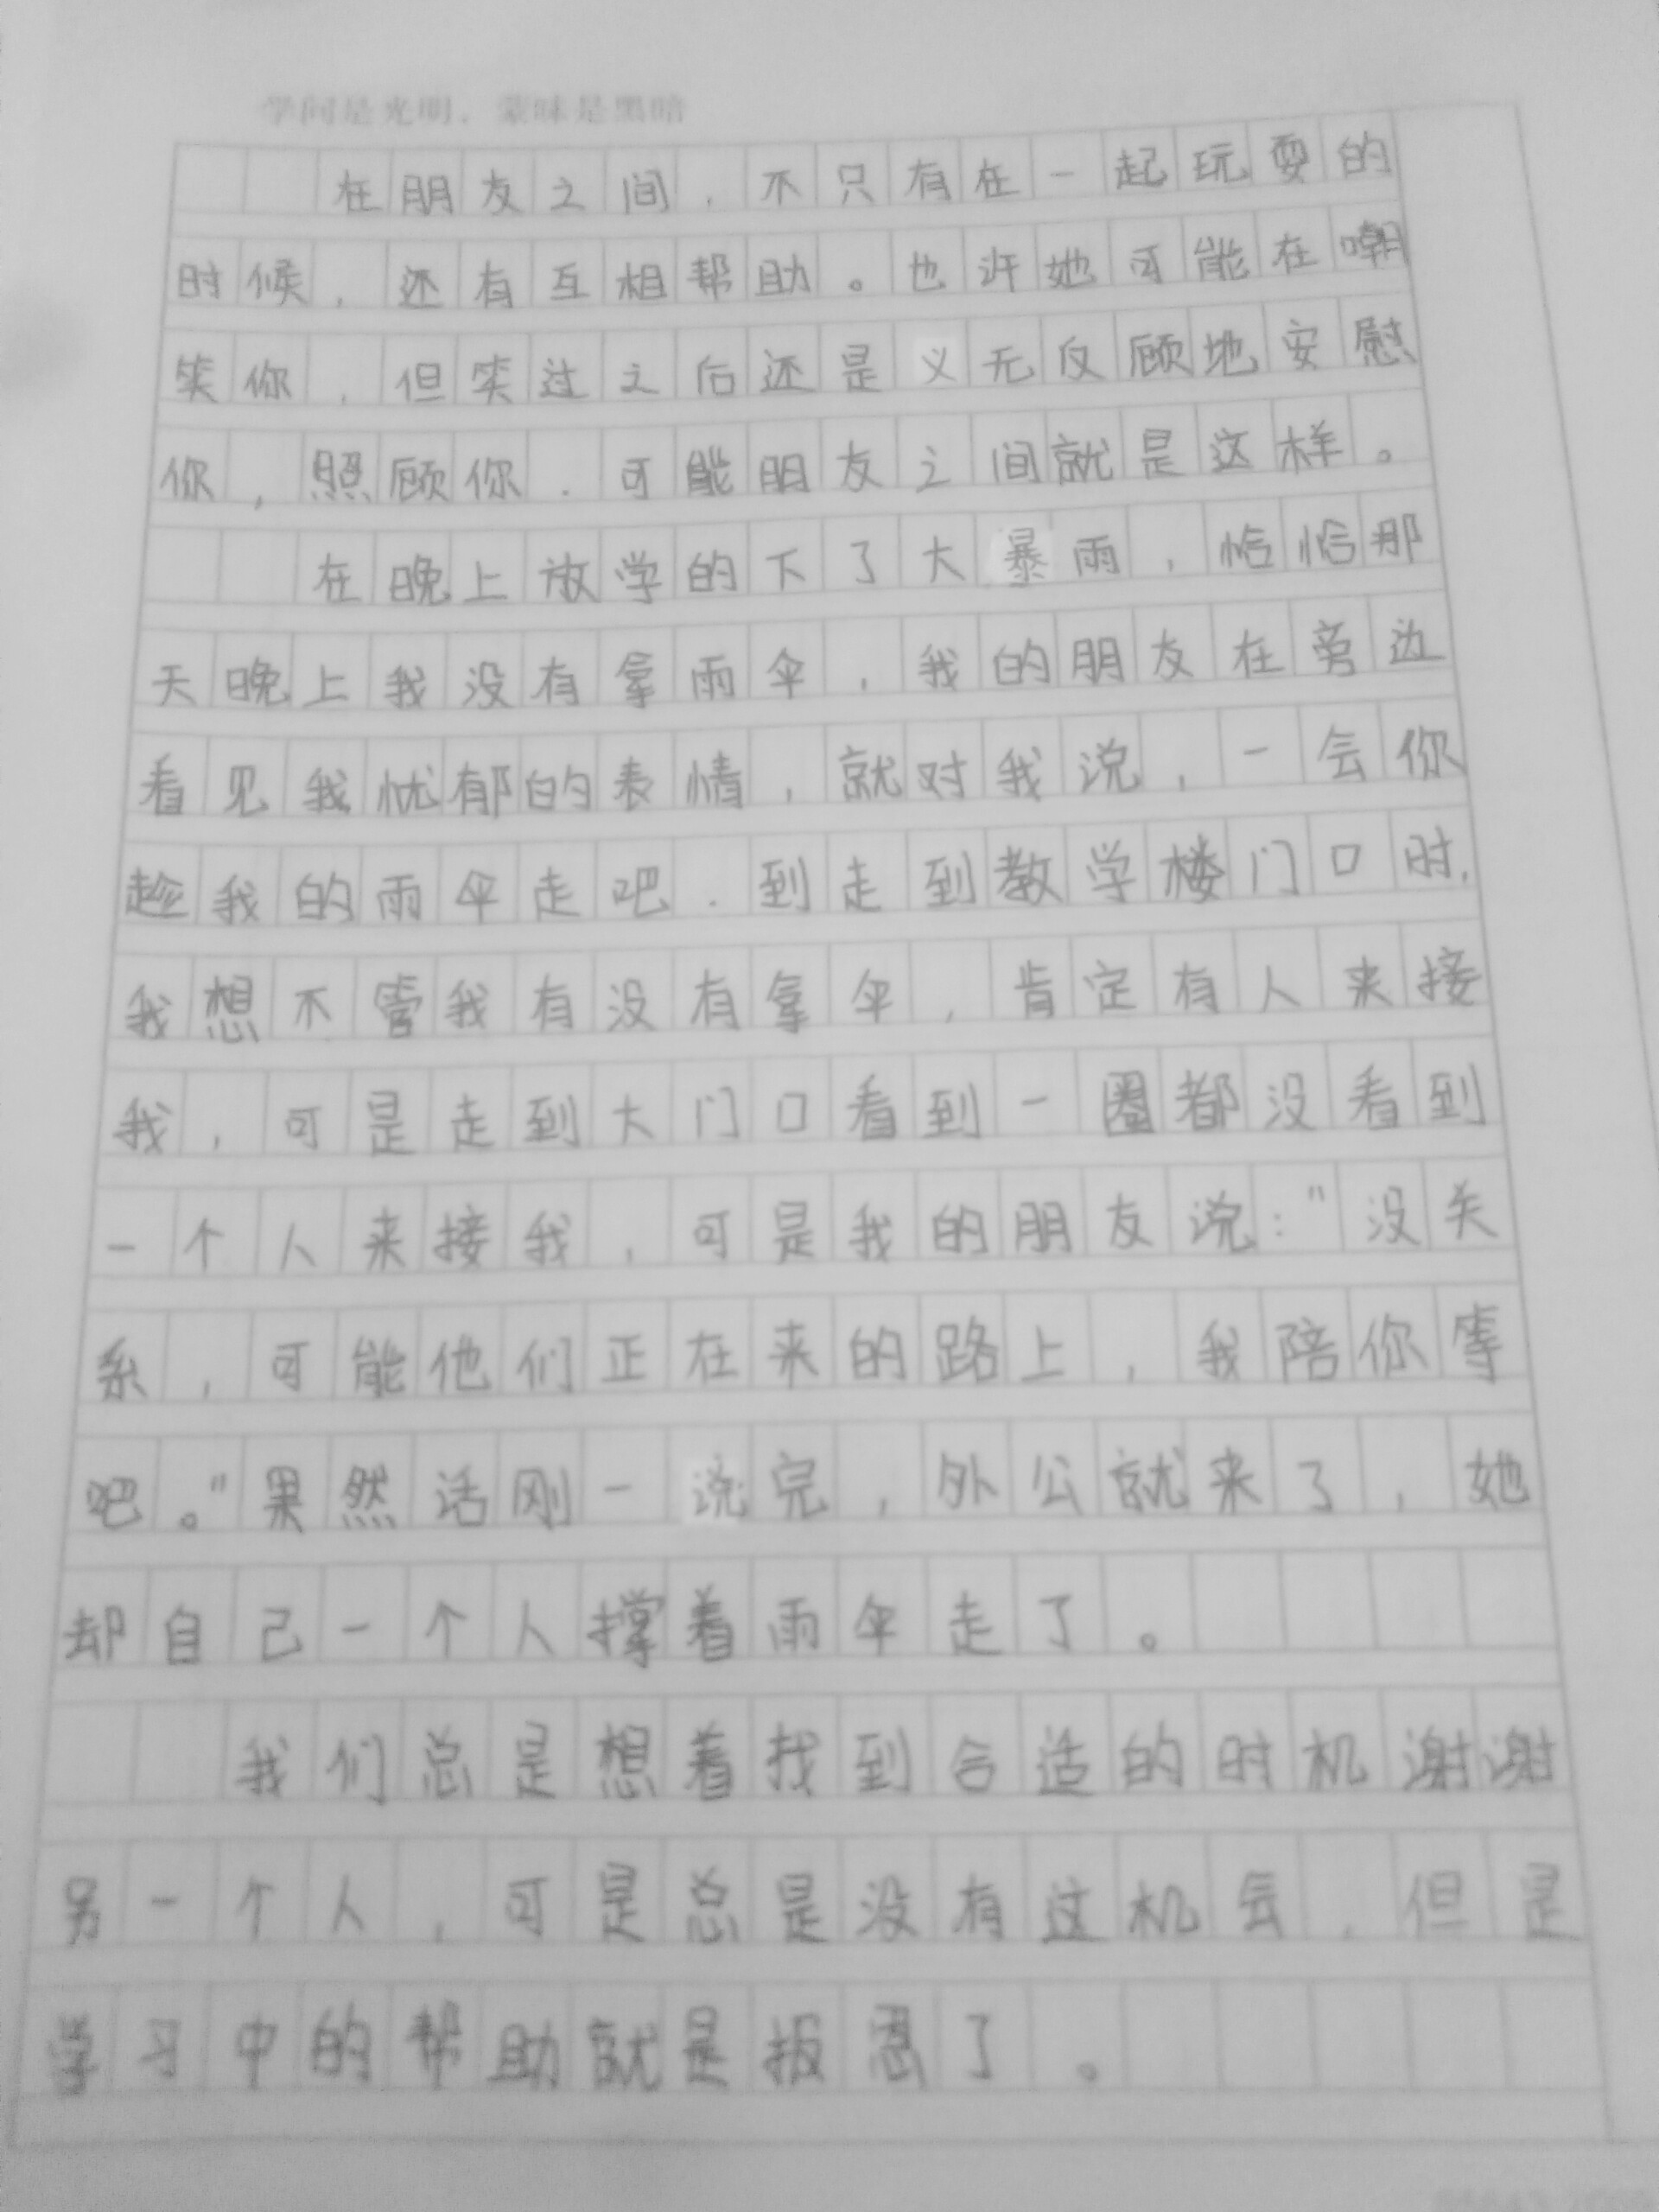 学问是光明，蒙昧是黑暗
在朋友之间，不只有在一起玩耍的
时候，还有互相帮助。也许她可能在嘲
笑你，但笑过之后还是义无反顾地安慰
你，照顾你．可能朋友之间就是这样。
在晚上放学的下了大暴雨，恰恰那
天晚上我没有拿雨伞，我的朋友在旁边
看见我忧郁的表情，就对我说，一会你
趁我的雨伞走吧．到走到教学楼门口时，
我想不管我有没有拿伞，肯定有人来接
我，可是走到大门口看到一圈都没看到
一个人来接我，可是我的朋友说："没关
系，可能他们正在来的路上，我陪你等
吧。"果然话刚一说完，外公就来了，她
却自己一个人撑着雨伞走了。
我们总是想着找到合适的时机谢谢
另一个人，可是总是没有这机会，但是
学习中的帮助就是报恩了。